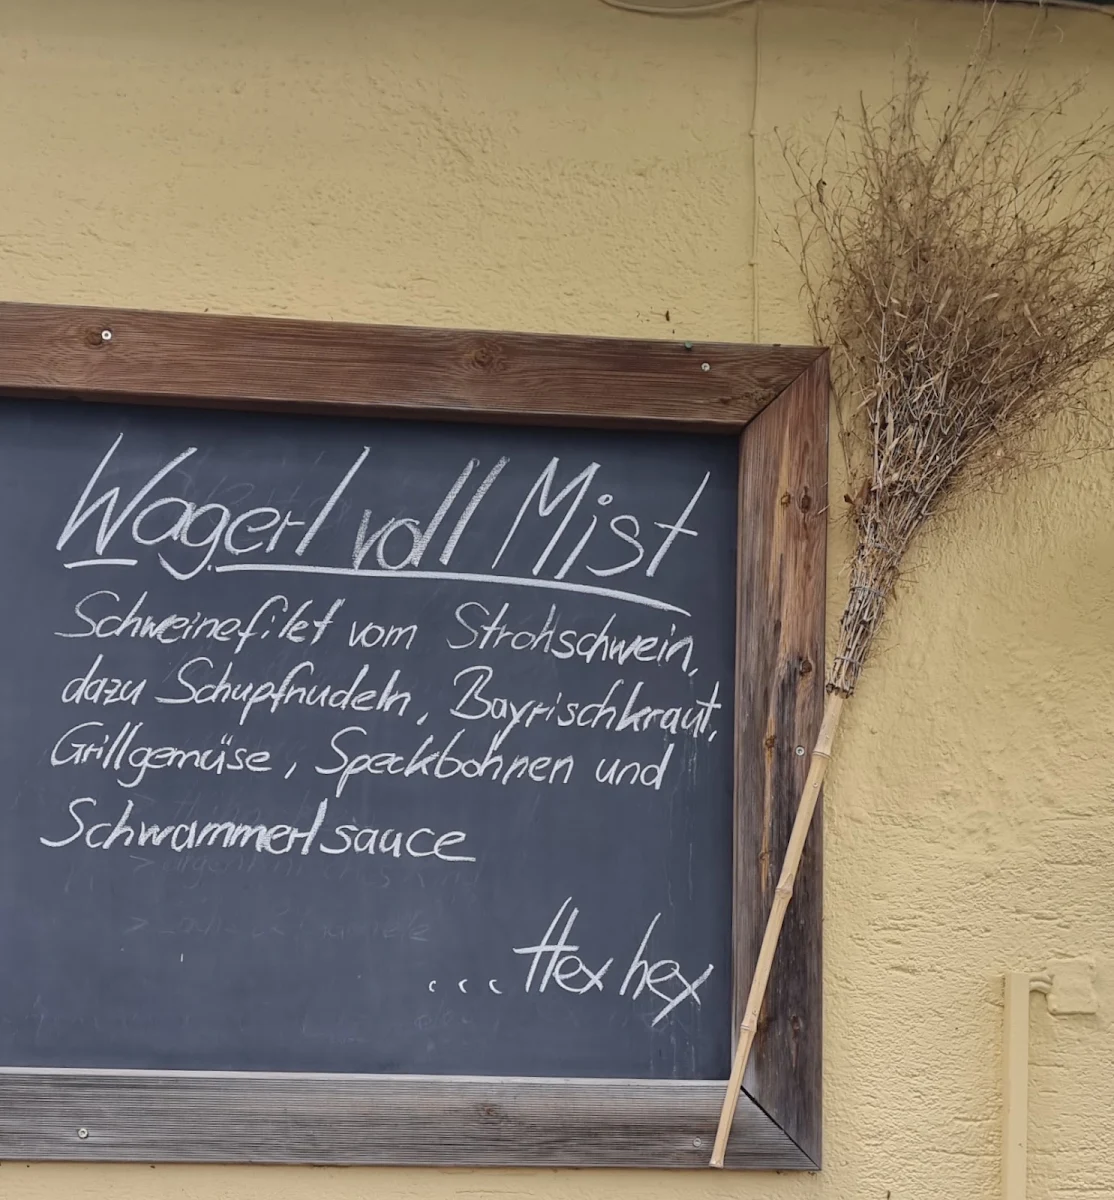 Wagerl voll Mist
Schweinefilet vom Strohschwein,
dazu Schupfnudeln, Bayrischkraut,
Grillgemüse, Speckbohnen und
Schwammerlsauce
...Hex hex